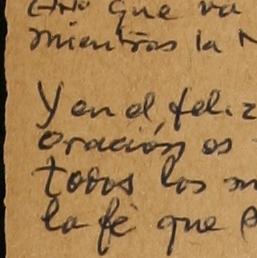 que va
mientras la
Y en el feliz
oración os
todos los
la fe que